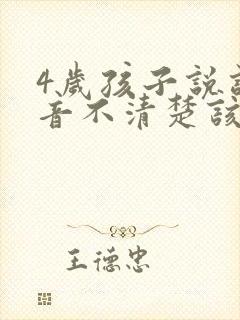 4歲孩子說
音不清楚該
王德忠